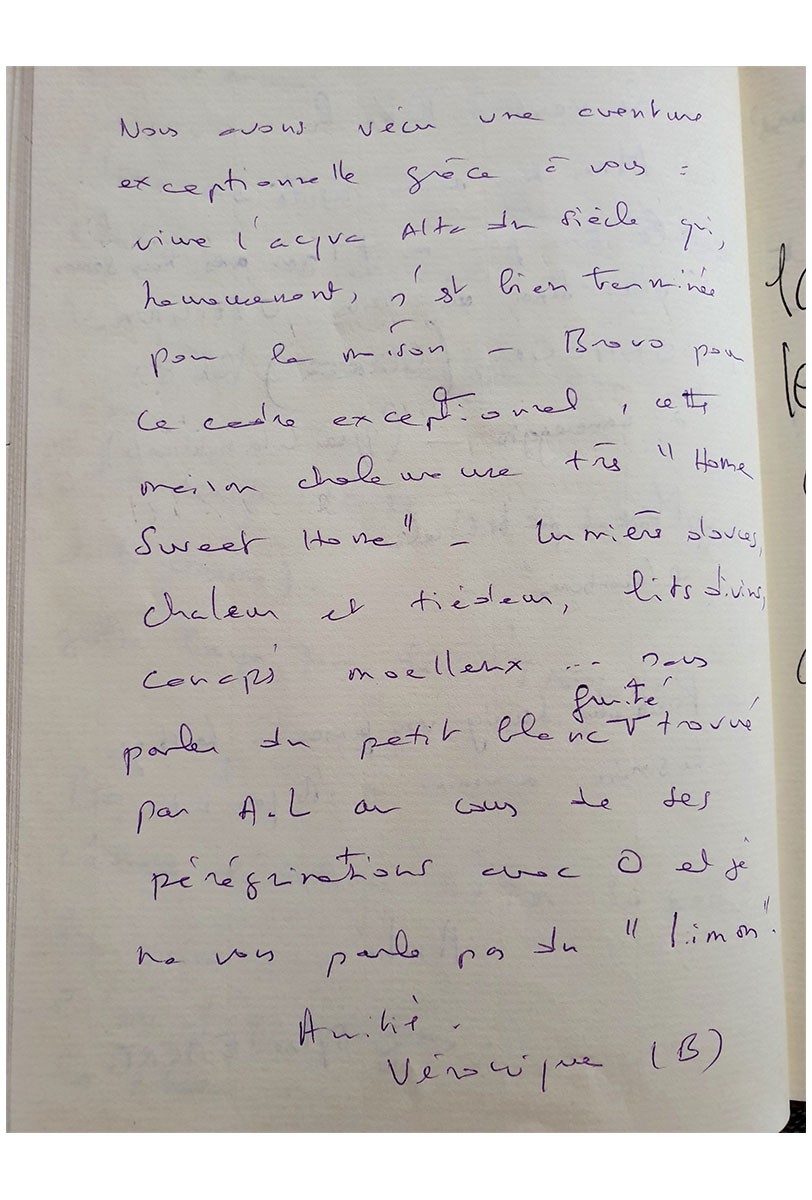 Nous avons vécu une aventure
exceptionnelle grâce à vous :
vivre l'acqua Alta du siècle qui,
heureusement, s'est bien terminée
pour la maison - Bravo pour
ce cadre exceptionnel, cette
maison chaleureuse très "Home
Sweet Home" - Lumière douces,
chaleur et tiédeur, lits divins,
canapés moelleux ... sans
parler du petit blanc fruité trouvé
par A.L au cours de ses
pérégrinations avec O et je
ne vous parle pas du "limon".
Amitié.
Véronique (B)